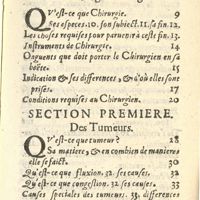 QV'est-ce que Chirurgie. 9
Ses especes. 10. son subiect. 11. sa fin. 12.
Les choses requises pour paruenir à ceste fin. 13
Instruments de Chirurgie. 14
Onguents que doit porter le Chirurgien en sa
boëte. 15
Indication & ses differences, & d'où elles sont
prises. 17
Conditions requises au Chirurgien. 20
SECTION PREMIERE.
Des Tumeurs.
QV'est-ce que tumeur? 28
Sa matiere, & en combien de manieres
elle se faict. 30
Qu'est-ce que fluxion. 32. ses causes. 32
Qu'est-ce que congestion. 32. ses causes. 33
Causes speciales des tumeurs. 33. differences